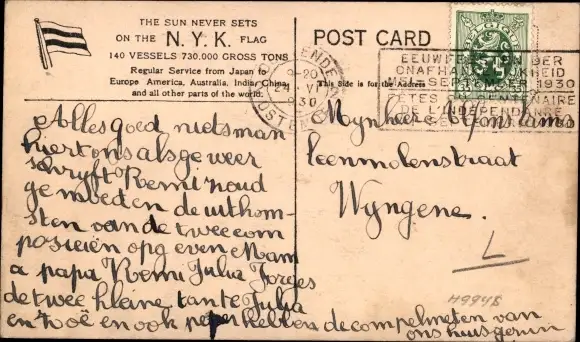 THE SUN NEVER SETS
ON THE N.Y.K. FLAG
140 VESSELS 730,000 GROSS TONS
Regular Service from Japan to
Europe America, Australia, India, China
and all other parts of the world.
POST CARD
This Side is for the Address
OOSTENDE
20
V
1930
EEUWFEESTEN DER
ONAFHANKELIJKHEID
MEI-SEPTEMBER 1930
FETES DU CENTENAIRE
DE L'INDEPENDANCE
Alles goed niets man
hiert ons als ge weer
schryft Remi zoud
ge moeden de uitkom-
sten van de twee com
posicien opg even Mam
a papa Remi Julia Jorges
de twee kleine tante Julia
en ook hebben de complmeten van
ons huisgezin
Mynheer
Leenmolenstraat
Wyngene.
L